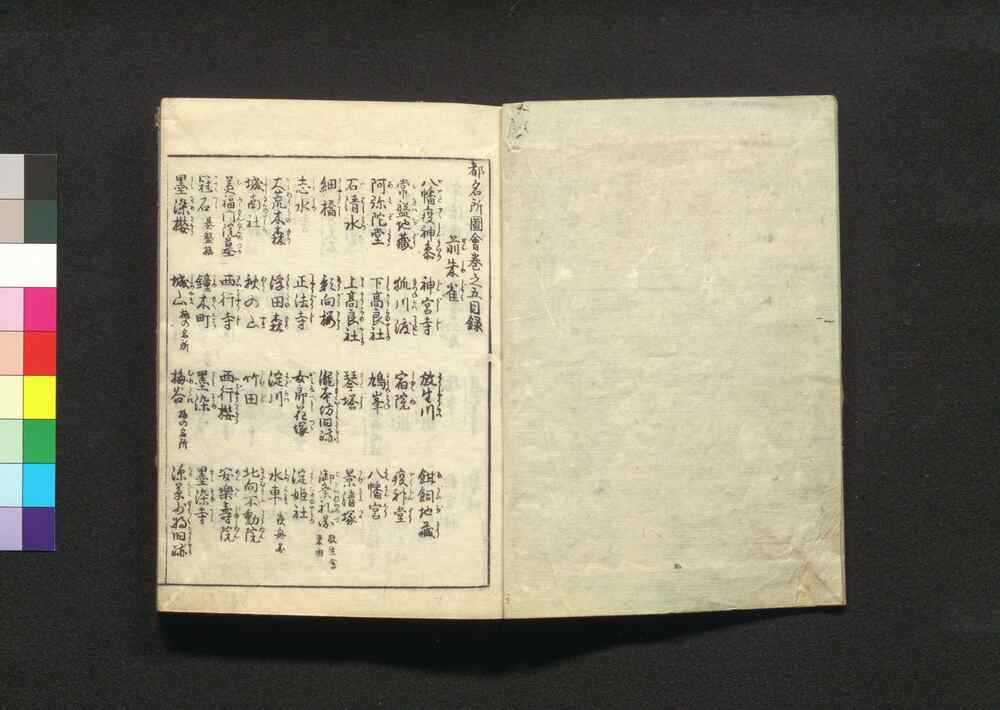 都名所圖會巻之五目録
前朱雀
八幡疫神参 神宮寺 放生川 飩飩地蔵
常盤地蔵 狐川渡 宿院 疫神堂
阿弥陀堂 下高良社 鳩峯 八幡宮
石清水 上高良社 琴塔 景清塚
細橋 影向桜 瀧本坊旧跡 御祭礼図 放生會
志水 正法寺 女郎花塚 淀姫社
大荒木森 浮田森 淀川 水車
城南社 秋の山 竹田 北向不動院
美福門院墓 西行寺 西行桜 安樂壽院
冠石 碁盤梅 鐘木町 墨染 墨染寺
墨染桜 城山 梅の名所 梅谷 梅の名所